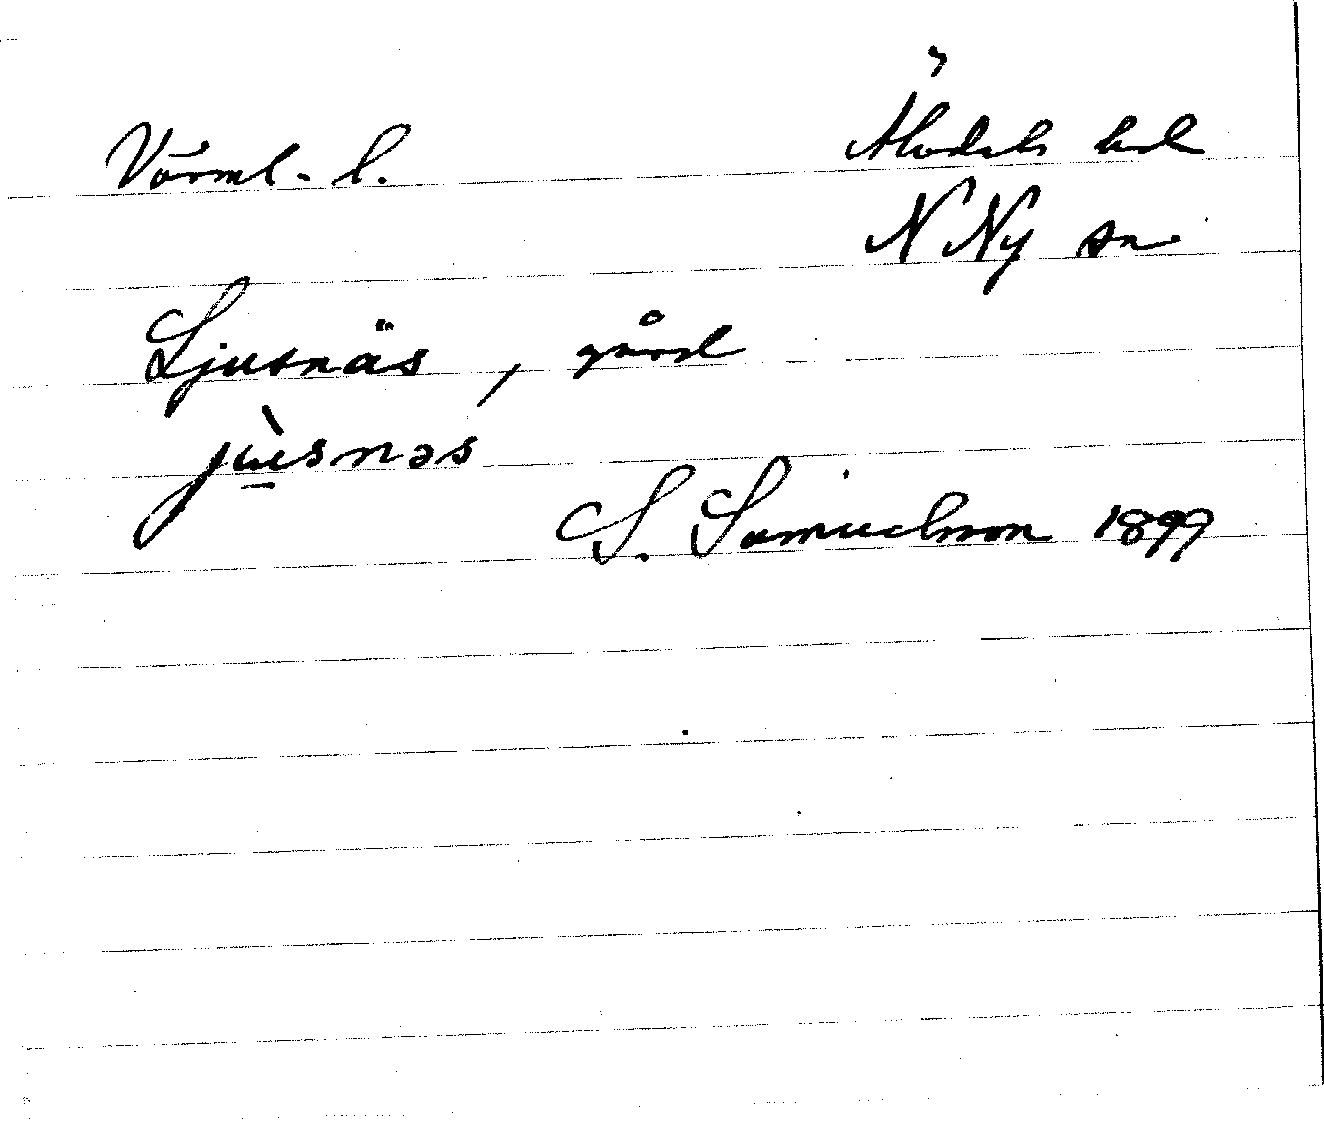 Värml. l. Älvdals hd
N Ny sn
Ljusnäs, gård
jùsnəs
S. Samuelsson 1899